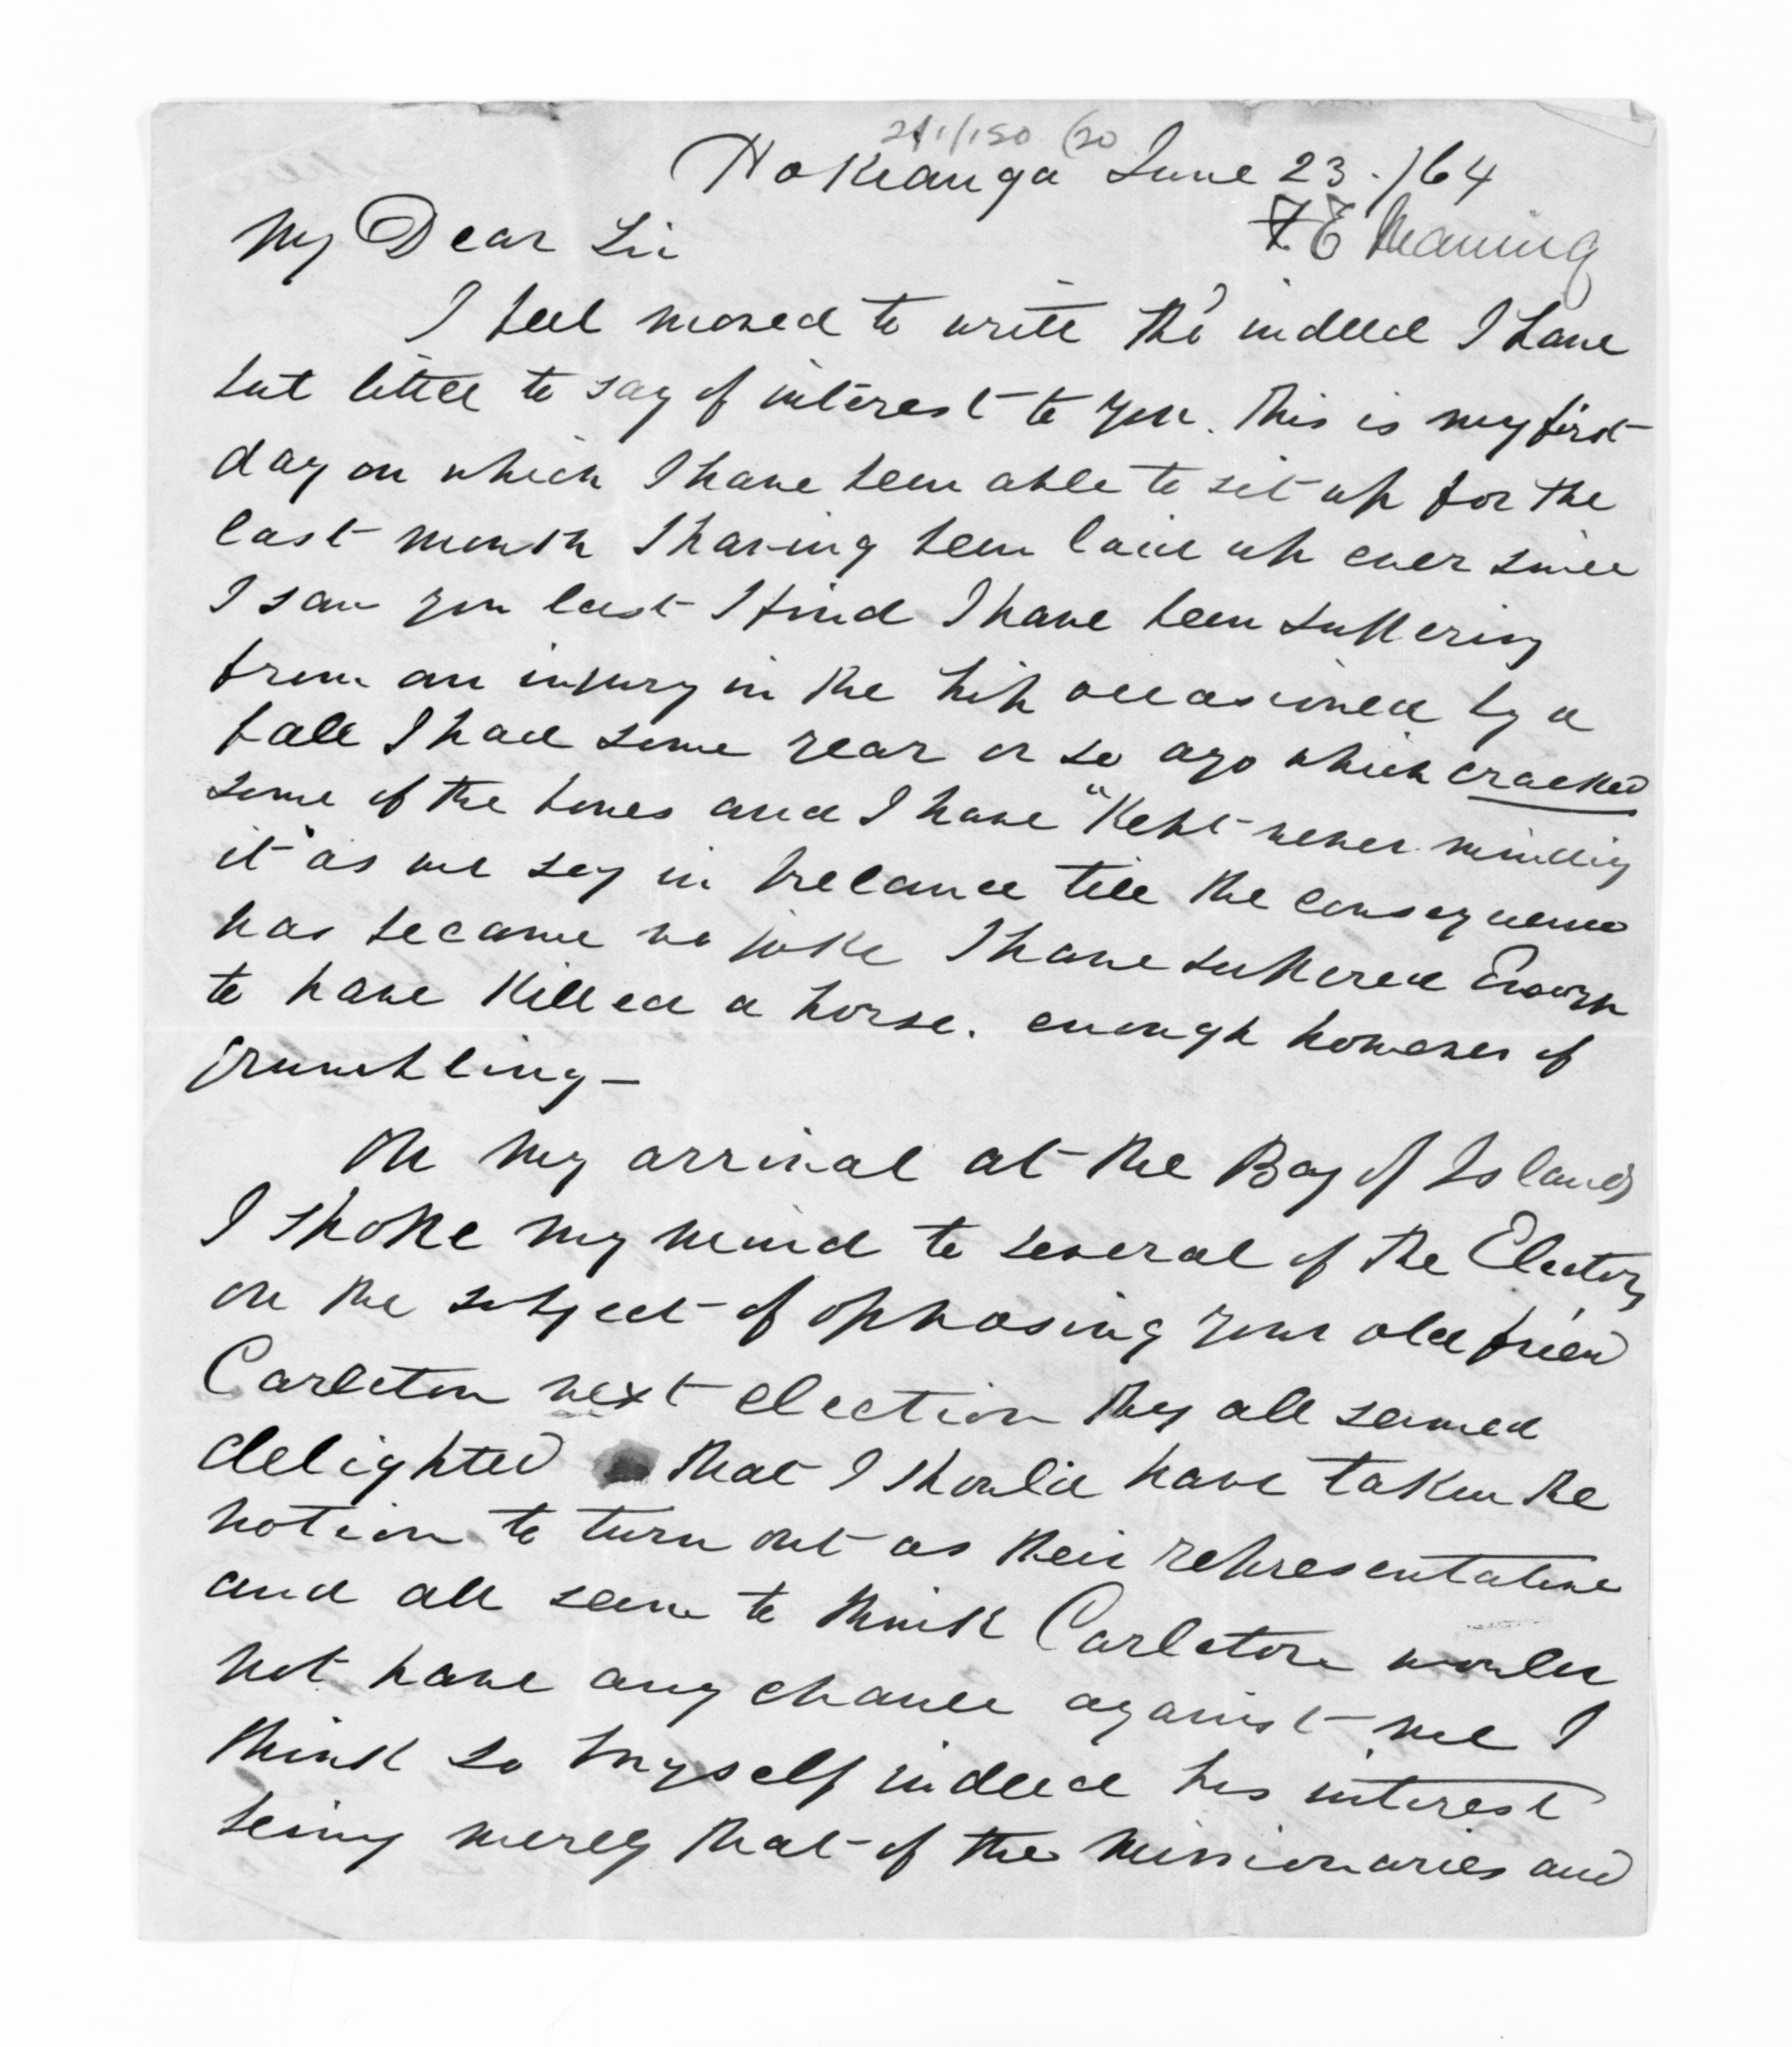 211/150 (20
Hokianga June 23./64
F E Maning
My Dear Sir
I feel moved to write tho' indeed I have
but little to say of interest to you. this is my first
day on which I have been able to sit up for the
last month I having been laid up ever since
I saw you last I find I have been suffering
from an injury in the hip occasioned by a
fall I had some year or so ago which cracked
some of the bones and I have "kept never minding
it" as we say in Ireland till the consequence
has became no joke I have suffered Enough
to have killed a horse. enough however of
grumbling —
On my arrival at the Bay of Islands
I spoke my mind to several of the Electors
on the subject of opposing your old friend
Carleton next election they all seemed
delighted that I should have taken the
notion to turn out as their representative
and all seem to think Carleton would
not have any chance against me I
think so myself indeed his interest
being merely that of the Missionaries and